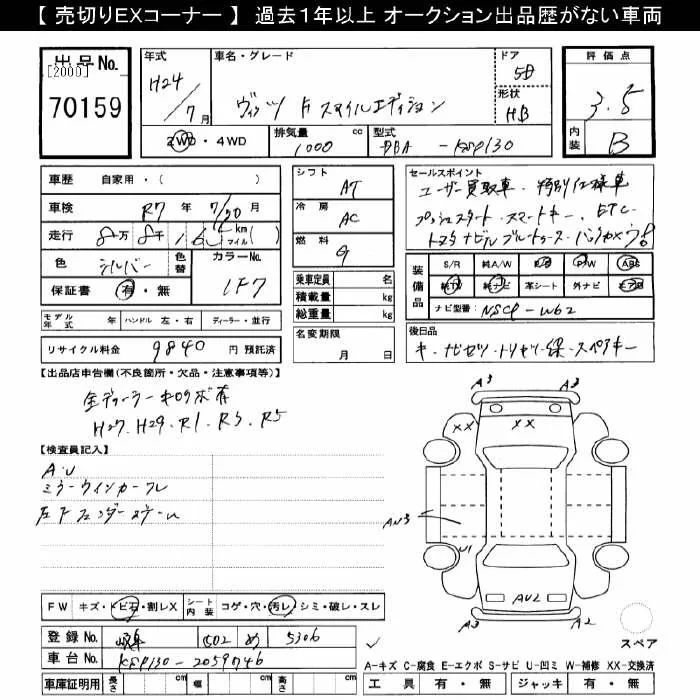 【 売切りEXコーナー 】 過去１年以上 オークション出品歴がない車両
出品No. [2000] 70159
年式 H24 / 7月
車名・グレード ヴィッツ F スマイルエディション
ドア 5D
形状 HB
評価点 3.5
内装 B
2WD・4WD
排気量 1000 cc
型式 DBA - KSP130
車歴 自家用・( )
車検 R7 年 7/20 月
走行 8万 8千 km マイル( )
色 シルバー 色替 カラーNo. 1F7
保証書 有・無
シフト AT
冷房 AC
燃料 G
乗車定員 名
積載量 kg
総重量 kg
セールスポイント
ユーザー買取車・特別仕様車
プッシュスタート・スマートキー・ETC・
トヨタナビ ブルートゥース・バックカメラ!
装備品 S/R 純A/W P/S P/W ABS
純TV 純ナビ 革シート 外ナビ エアB
ナビ型番: NSCP-W62
モデル年式 年 ハンドル 左・右 ディーラー・並行
リサイクル料金 9840 円 預託済
名変期限 月 日
後日品
キ・ナビセツ・トリセツ・録・スペアキー
【出品店申告欄(不良箇所・欠品・注意事項等)】
全ディーラーキロクボ有
H27. H29. R1. R3. R5
【検査員記入】
A.U
ミラーウインカーワレ
左F フェンダー
A3 A3
XX XX
U1
AU2
A3 A2
スペア
FW キズ・トビ石・割レX シート内装 コゲ・穴・汚レ・シミ・破レ・スレ
登録No. 岐阜 502 め 5306
車台No. KSP130-2059746
A-キズ C-腐食 E-エクボ S-サビ U-凹ミ W-補修 XX-交換済
車庫証明用 長さ cm 幅 cm 高さ cm
工具 有・無 ジャッキ 有・無